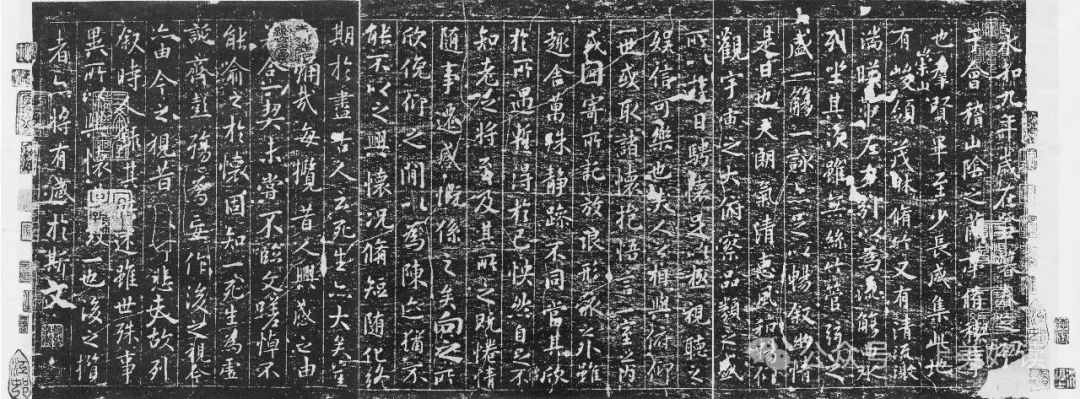 永和九年歲在癸丑暮春之初
于會稽山陰之蘭亭脩稧事
也羣賢畢至少長咸集此地
有崇山峻領茂林脩竹又有清流激
湍暎帶左右引以為流觴曲水
列坐其次雖無絲竹管弦之
盛一觴一詠亦足以暢叙幽情
是日也天朗氣清惠風和暢仰
觀宇宙之大俯察品類之盛
所以遊目騁懷足以極視聽之
娛信可樂也夫人之相與俯仰
一世或取諸懷抱悟言一室之內
或因寄所託放浪形骸之外雖
趣舍萬殊靜躁不同當其欣
於所遇蹔得於己怏然自足不
知老之將至及其所之既惓情
隨事遷感慨係之矣向之所
欣俛仰之間以為陳迹猶不
能不以之興懷況脩短隨化終
期於盡古人云死生亦大矣豈
痛哉每攬昔人興感之由
合一契未嘗不臨文嗟悼不
能喻之於懷固知一死生為虛
誕齊彭殤為妄作後之視今
亦由今之視昔悲夫故列
叙時人錄其所述雖世殊事
異所以興懷其致一也後之攬
者亦將有感於斯文
公众号